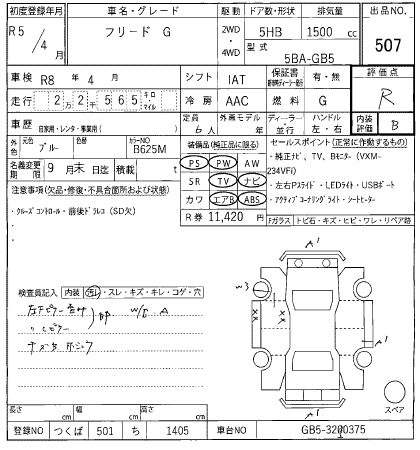 初度登録年月 車名・グレード 駆動 ドア数・形状 排気量 出品NO.
R5/4月 フリード G 2WD・4WD 5HB 1500cc 507
型式 5BA-GB5
車検 R8年4月 シフト IAT 保証書 有・無 評価点 R
走行 2万2千565 キロ・マイル 冷房 AAC 燃料 G
車歴 自家用・レンタ・事業用( ) 定員 6人 外車モデル 年 ディーラー・並行 ハンドル 左・右 内装評価 B
外色 元色 ブルー 色替 カラーNO B625M 装備品(純正品に限る) セールスポイント(正常に作動するもの)
名義変更期限 9月末日迄 積載 t PS PW AW ・純正ナビ、TV、Bモニター(VXM-234VFi)
注意事項(欠品・修復・不具合箇所および状態) SR TV ナビ ・左右Pスライド・LEDライト・USBポート
・クルーズコントロール・前後ドラレコ(SD欠) カワ エアB ABS ・アクティブコーナリングライト・シートヒーター
R券 11,420円 Fガラス トビ石・キズ・ヒビ・ワレ・リペア跡
検査員記入 内装 汚れ・スレ・キズ・キレ・コゲ・穴
W/C A
A'
W3
××
××
A'
A'
スペア
長さ cm 幅 cm 高さ cm
登録NO つくば 501 ち 1405 車台NO GB5-3200375